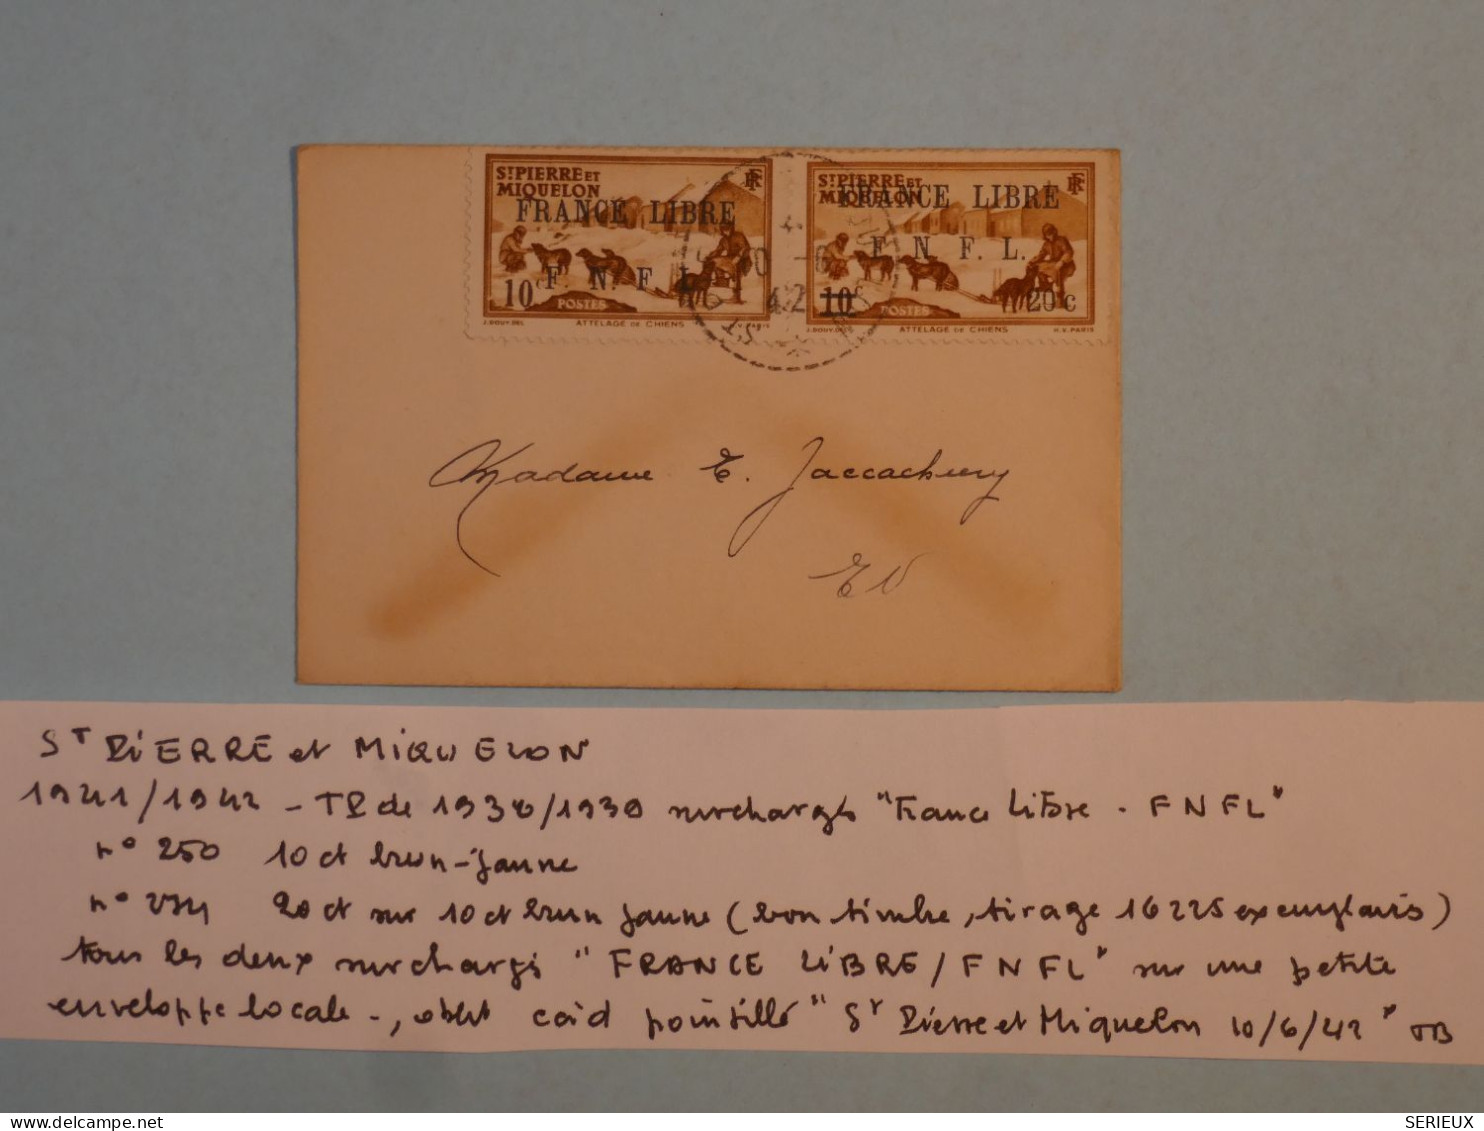 ST PIERRE ET MIQUELON
RF
FRANCE LIBRE
F. N. F. L.
10c
POSTES
ATTELAGE DE CHIENS
ST PIERRE ET MIQUELON
RF
FRANCE LIBRE
F. N. F. L.
10c
20c
POSTES
ATTELAGE DE CHIENS
H.V. PARIS
10 -6
42
Madame E. Jaccachury
EV
ST PIERRE et MIQUELON
1941/1942 - TP de 1938/1939 surchargés "France Libre - FNFL"
n° 250 10 ct brun-jaune
n° 20 ct sur 10 ct brun jaune (bon timbre, tirage 16225 exemplaires)
tous les deux surchargés "FRANCE LIBRE/FNFL" sur une petite
enveloppe locale -, oblit cad pointillé "St Pierre et Miquelon 10/6/42" TB
delcampe.net
SERIEUX